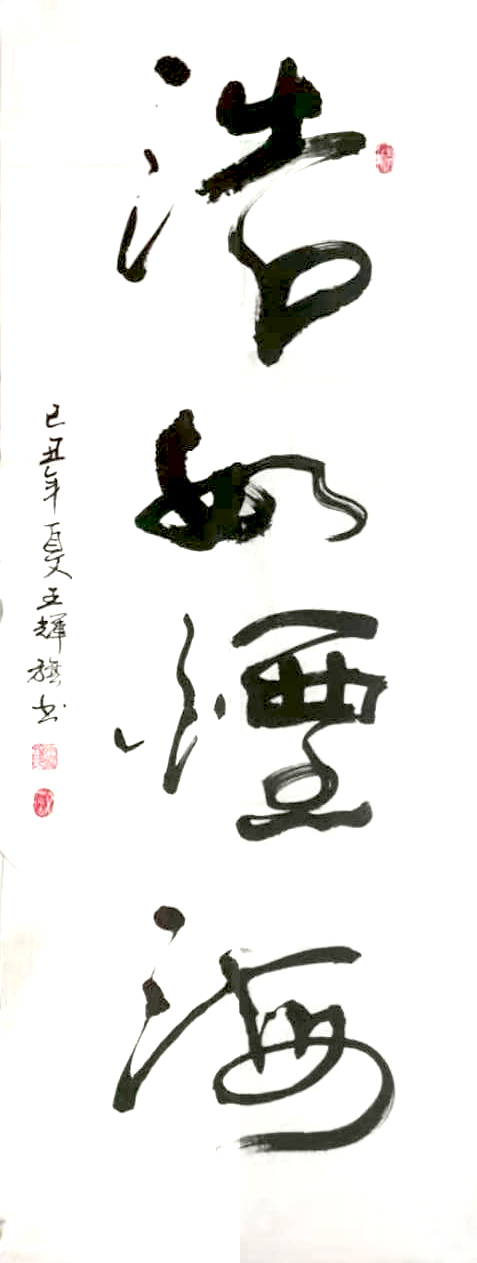 浩如煙海
己丑年夏王輝旗书